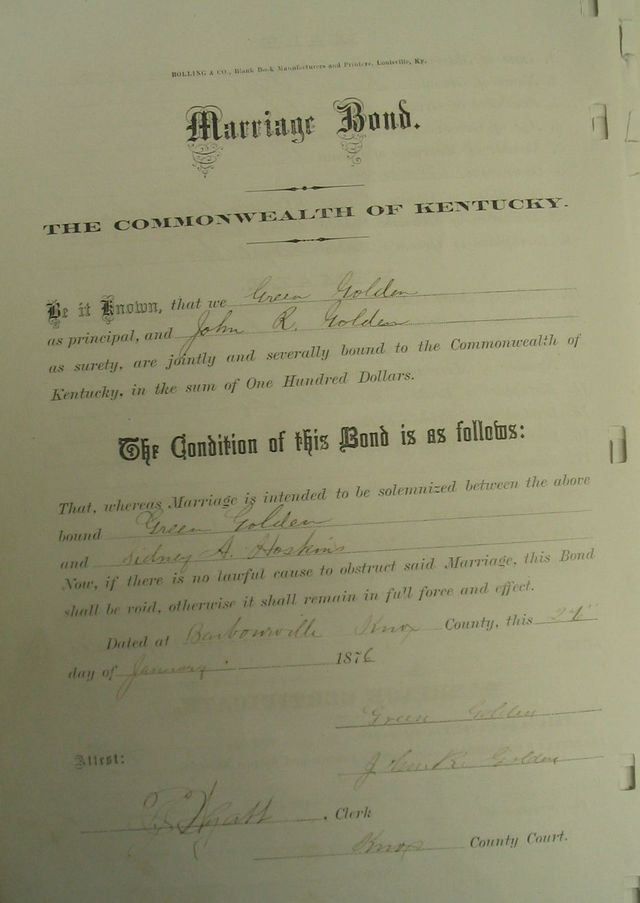 BOLLING & CO., Blank Book Manufacturers and Printers, Louisville, Ky.
Marriage Bond.
THE COMMONWEALTH OF KENTUCKY.
Be it Known, that we Green Golden
as principal, and John R. Golden
as surety, are jointly and severally bound to the Commonwealth of
Kentucky, in the sum of One Hundred Dollars.
The Condition of this Bond is as follows:
That, whereas Marriage is intended to be solemnized between the above
bound Green Golden
and Sidney A. Hoskins
Now, if there is no lawful cause to obstruct said Marriage, this Bond
shall be void, otherwise it shall remain in full force and effect.
Dated at Barbourville Knox County, this
day of January. 1876
Green Golden
Attest: John R. Golden
Clerk
Knox County Court.